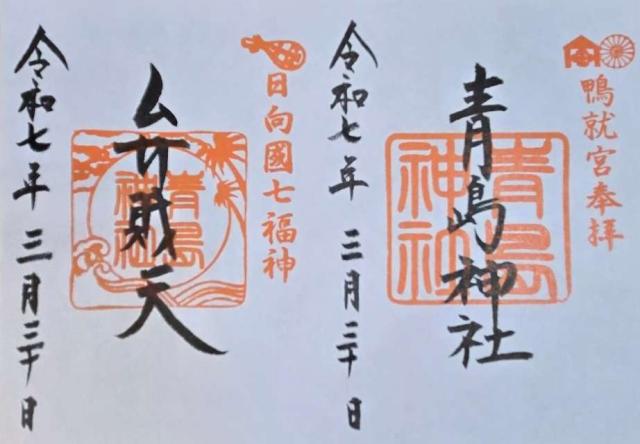 鴨就宮奉拝
青島神社
青島
神社
令和七年 三月三十日
日向國七福神
弁財天
青島
神社
令和七年 三月三十日